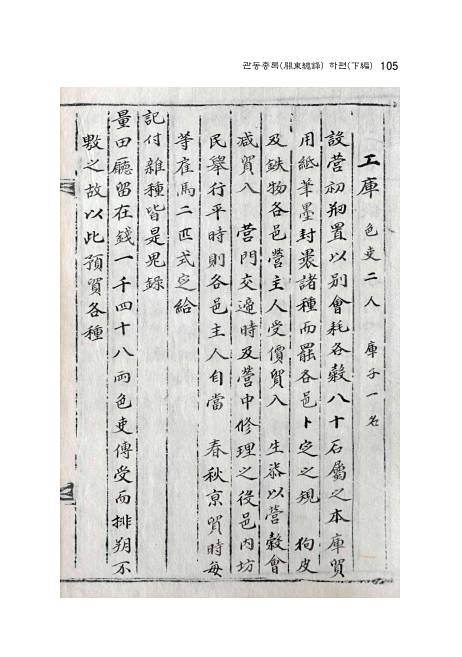 관동총록(關東總錄) 하편(下編) 105
工庫 色吏二人 庫子一名
設营初刱置以別會耗各穀八十石屬之本庫貿
用紙筆墨封裹諸種而罷各邑卜㝎之規 狗皮
及鉄物各邑营主人受價貿入 生柒以营穀會
减貿入 营門交遞時及营中修理之役邑內坊
民舉行平時則各邑主人自當 春秋京貿時每
等雇馬二匹式㝎給
記付雜種皆是見錄
量田廳留在錢一千四十八兩色吏傳受而排朔不
敷之故以此預貿各種